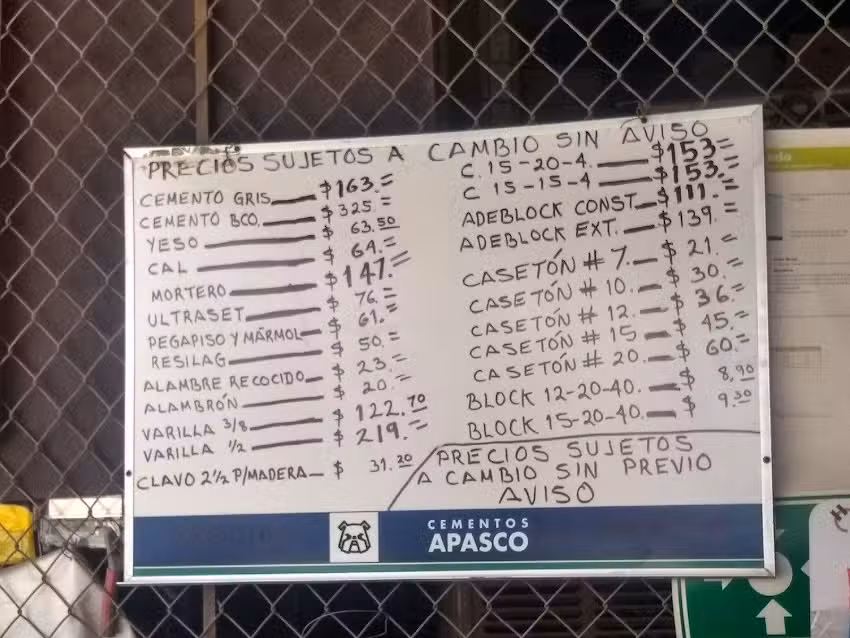 PRECIOS SUJETOS A CAMBIO SIN AVISO
CEMENTO GRIS $163.=
CEMENTO BCO. $325.=
YESO $ 63.50
CAL $ 64.=
MORTERO $147.=
ULTRASET $ 76.=
PEGAPISO Y MÁRMOL $ 61.=
RESILAG $ 50.=
ALAMBRE RECOCIDO $ 23.=
ALAMBRÓN $ 20.=
VARILLA 3/8 $ 122.70
VARILLA 1/2 $ 219.=
CLAVO 2 1/2 P/MADERA $ 31.20
C. 15-20-4. $153=
C 15-15-4 $153.=
ADEBLOCK CONST. $111.=
ADEBLOCK EXT. $139.=
CASETÓN # 7. $ 21.=
CASETÓN # 10. $ 30.=
CASETÓN # 12. $ 36.=
CASETÓN # 15 $ 45.=
CASETÓN # 20. $ 60.=
BLOCK 12-20-40. $ 8.90
BLOCK 15-20-40. $ 9.30
PRECIOS SUJETOS
A CAMBIO SIN PREVIO
AVISO
CEMENTOS
APASCO